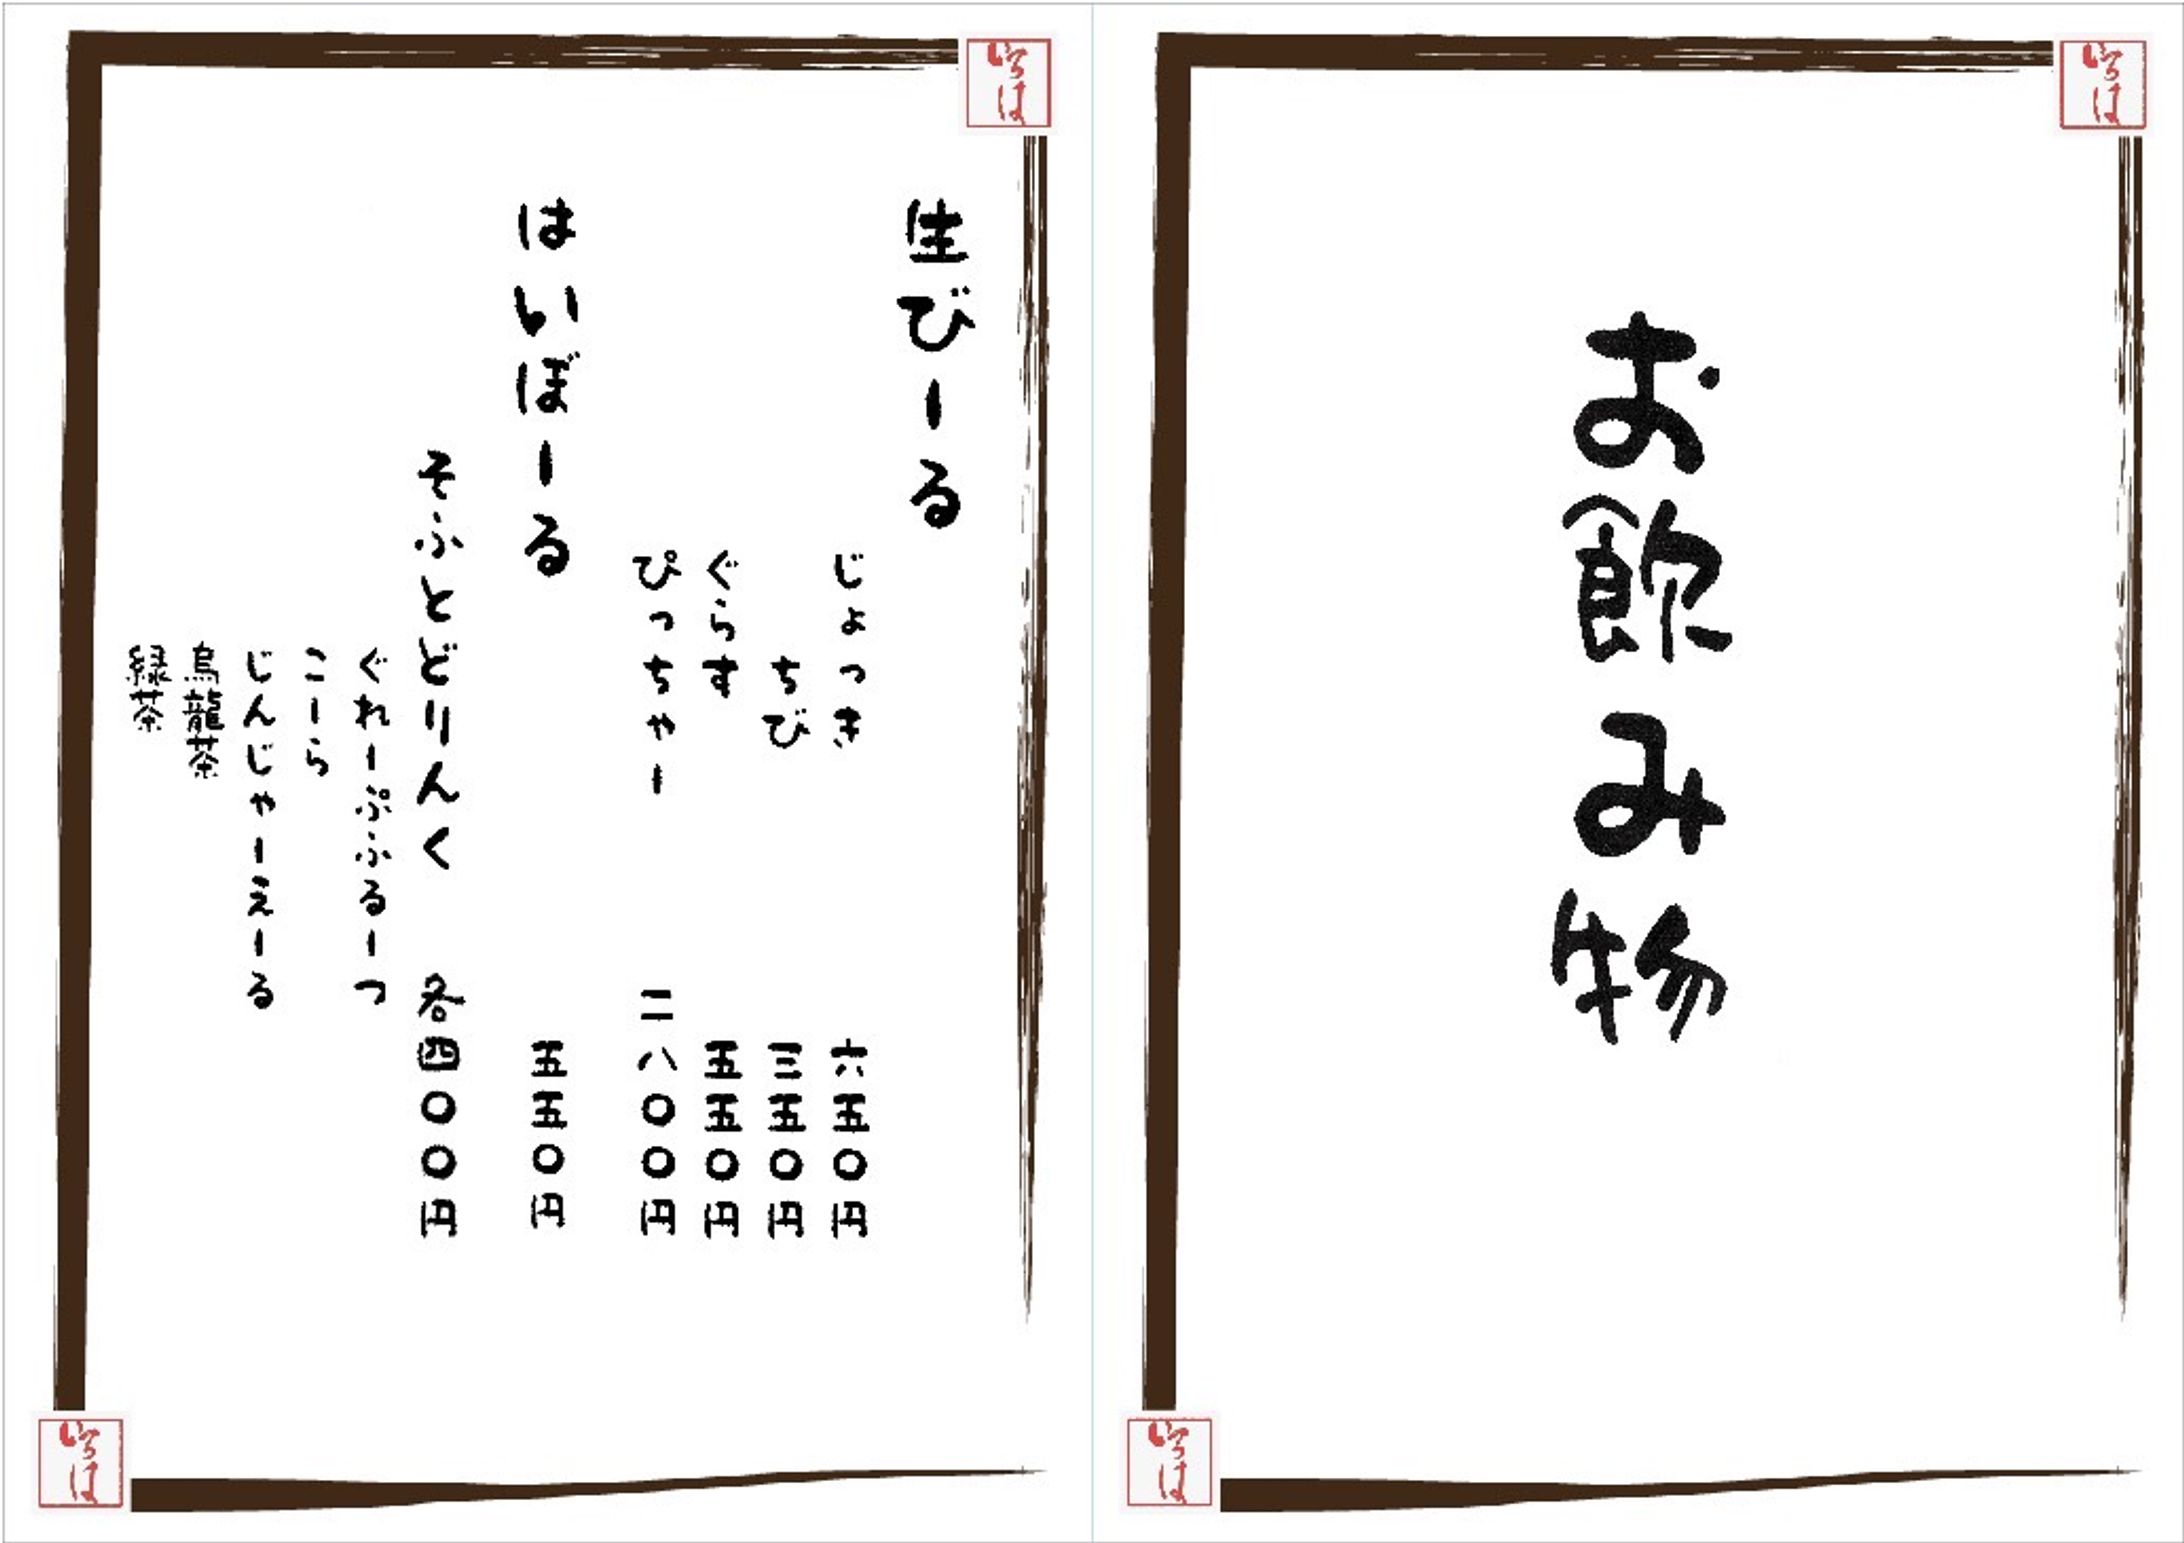 お飲み物
生びーる
じょっき 六五〇円
ちび 三五〇円
ぐらす 五五〇円
ぴっちゃー 二八〇〇円
はいぼーる 五五〇円
そふとどりんく 各四〇〇円
ぐれーぷふるーつ
こーら
じんじゃーえーる
烏龍茶
緑茶
いろは
いろは
いろは
いろは